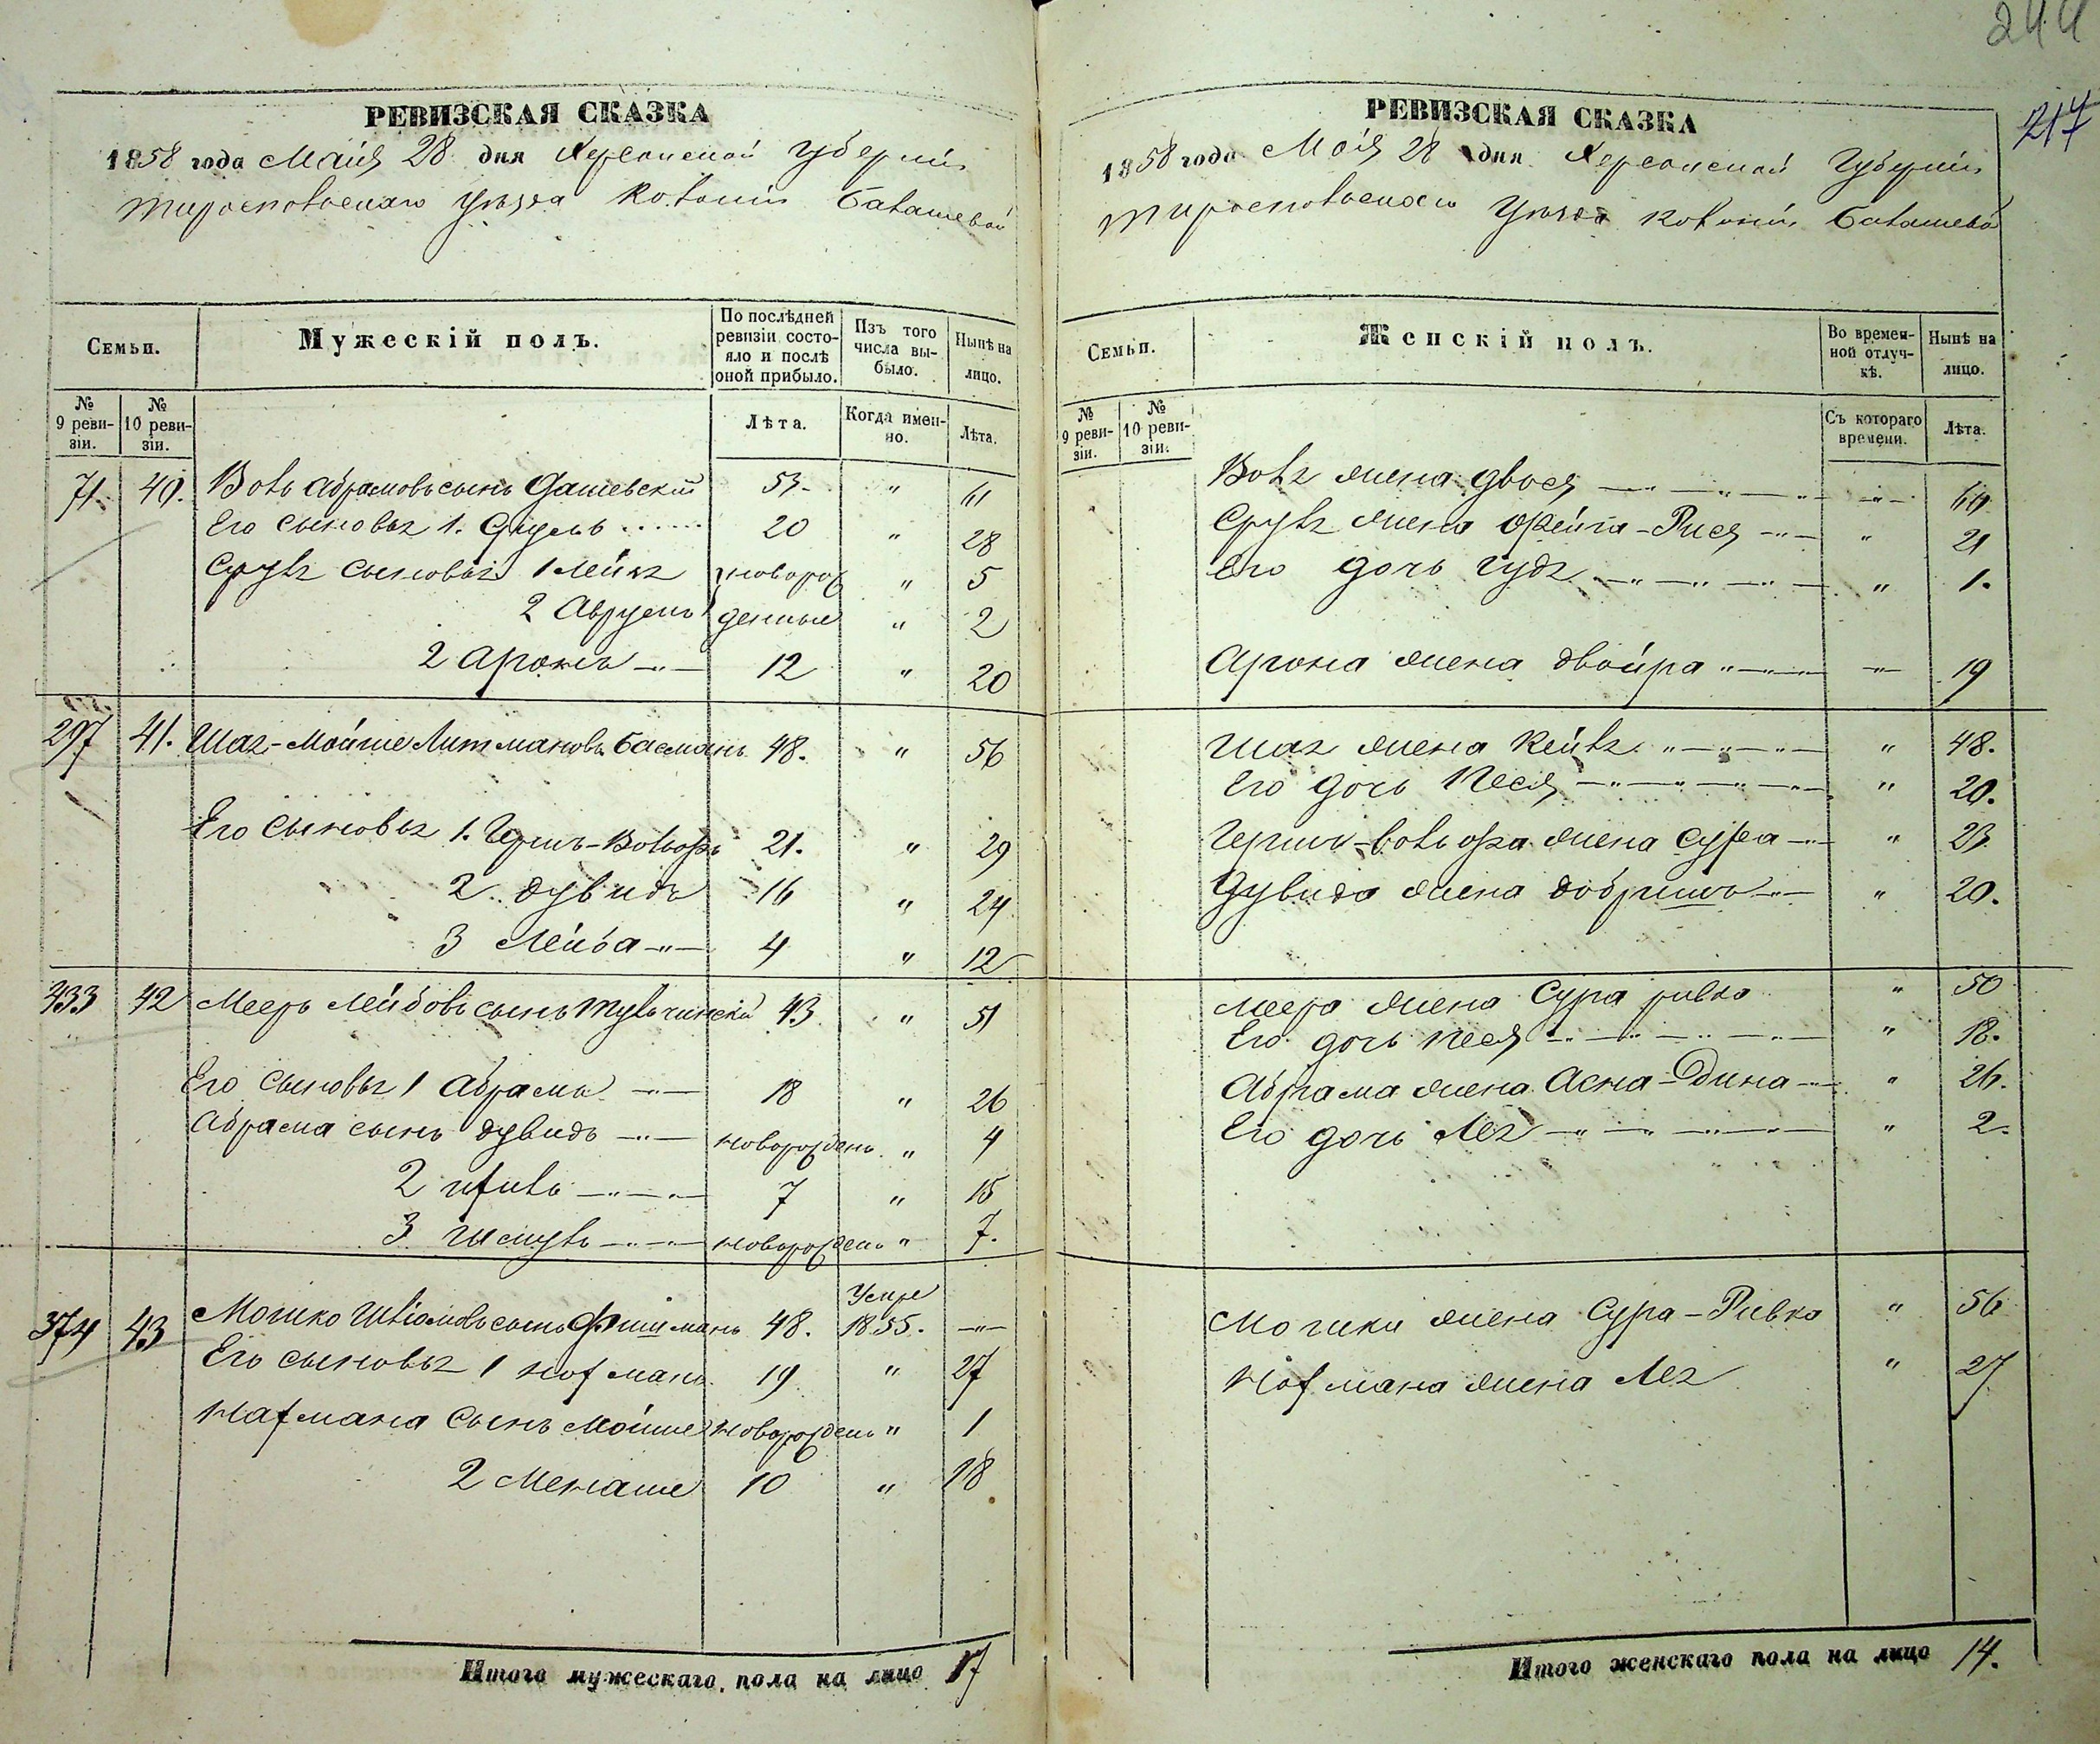 244
217
РЕВИЗСКАЯ СКАЗКА
1858 года Маія 28 дня Херсонской Губерніи
Тираспольскаго Уѣзда Колоніи Балашевой
Семьи.
Мужескій полъ.
По послѣдней ревизіи состояло и послѣ оной прибыло.
Изъ того числа выбыло.
Нынѣ на лицо.
№ 9 ревизіи.
№ 10 ревизіи.
Лѣта.
Когда именно.
Лѣта.
71. 40. Волъ Абрамовъ сынъ Дашевскій 53. " 61
Его сыновья 1. Сруль 20 " 28
Сруля сыновья 1 Лейза новорож " 5
2 Аврумъ денные " 2
2 Аронъ 12 " 20
297 41. Шая-Мойше Литмановъ Басманъ 48. " 56
Его сыновья 1. Гершъ-Вольфъ 21. " 29
2 Дувидъ 16 " 24
3 Лейба 4 " 12
433 42 Мееръ Лейбовъ сынъ Тульчинскій 43 " 51
Его сыновья 1 Абрамъ 18 " 26
Абрама сынъ Дувидъ новорожденъ " 4
2 7 " 15
3 Шмуль новорожденъ " 7.
374 43 Мошко Шліомовъ сынъ Фишманъ 48. Умре 1855.
Его сыновья 1 Нахманъ 19 " 27
Нахмана сынъ Мойше новорожденъ " 1
2 Менаше 10 " 18
Итого мужескаго пола на лицо 17
РЕВИЗСКАЯ СКАЗКА
1858 года Маія 28 дня Херсонской Губерніи
Тираспольскаго Уѣзда Колоніи Балашевой
Семьи.
Женскій полъ.
Во временной отлучкѣ.
Нынѣ на лицо.
№ 9 ревизіи.
№ 10 ревизіи.
Съ котораго времени.
Лѣта.
Воля жена Двося 60
Сруля жена Фейга-Рися " 21
Его дочь Гудя " 1.
Арона жена Двойра 19
Шая жена Кейля " 48.
Его дочь Песя " 20.
Гершъ-Вольфа жена Сура " 23
Дувида жена Добришъ " 20.
Меера жена Сура Ривка " 50
Его дочь Песя " 18.
Абрама жена Асна-Дина " 26.
Его дочь Лея " 2.
Мошки жена Сура-Ривка " 56
Нахмана жена Лея " 27
Итого женскаго пола на лицо 14.